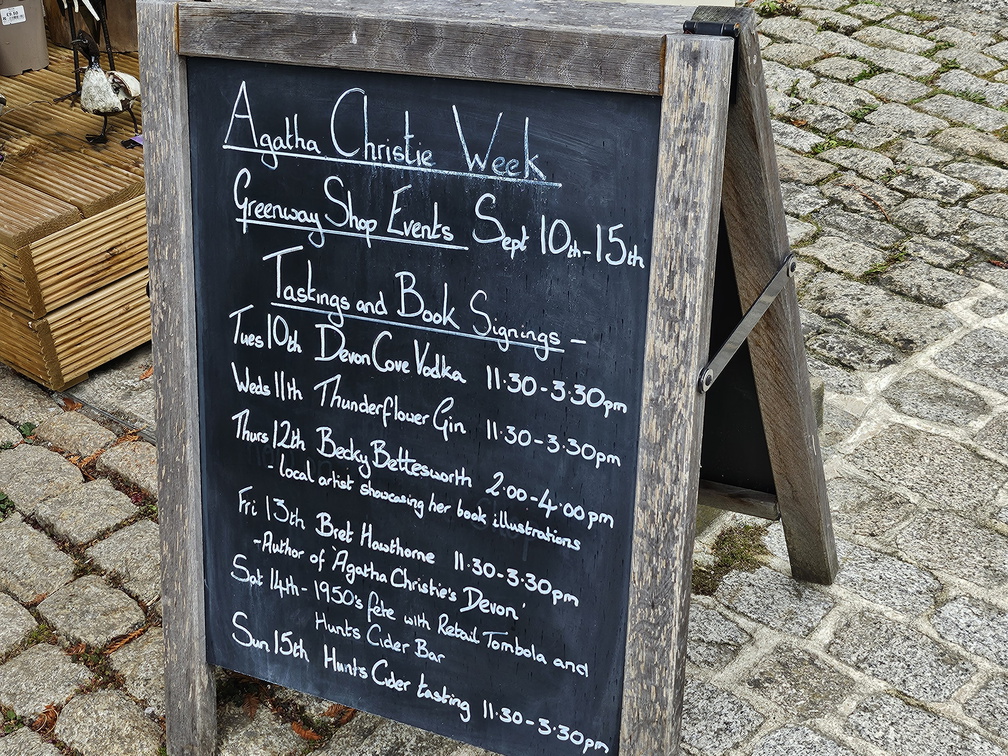 Agatha Christie Week
Greenway Shop Events Sept 10th-15th
Tastings and Book Signings -
Tues 10th Devon Cove Vodka 11.30-3.30pm
Weds 11th Thunderflower Gin 11.30-3.30pm
Thurs 12th Becky Bettesworth 2.00-4.00pm
- local artist showcasing her book illustrations
Fri 13th Bret Hawthorne 11.30-3.30pm
-Author of 'Agatha Christie's Devon'
Sat 14th - 1950's fete with Retail Tombola and
Hunts Cider Bar
Sun 15th Hunts Cider tasting 11.30-3.30pm